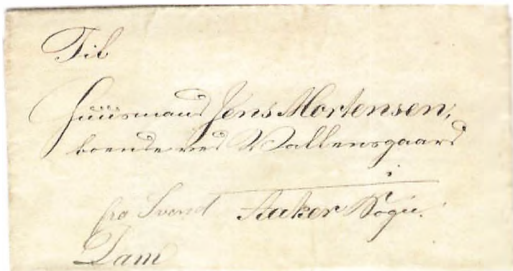 Til
Huusmand Jens Mortensen,
boende ved Vallensgaard
i
fra Svend Aaker Sogn.
Dam